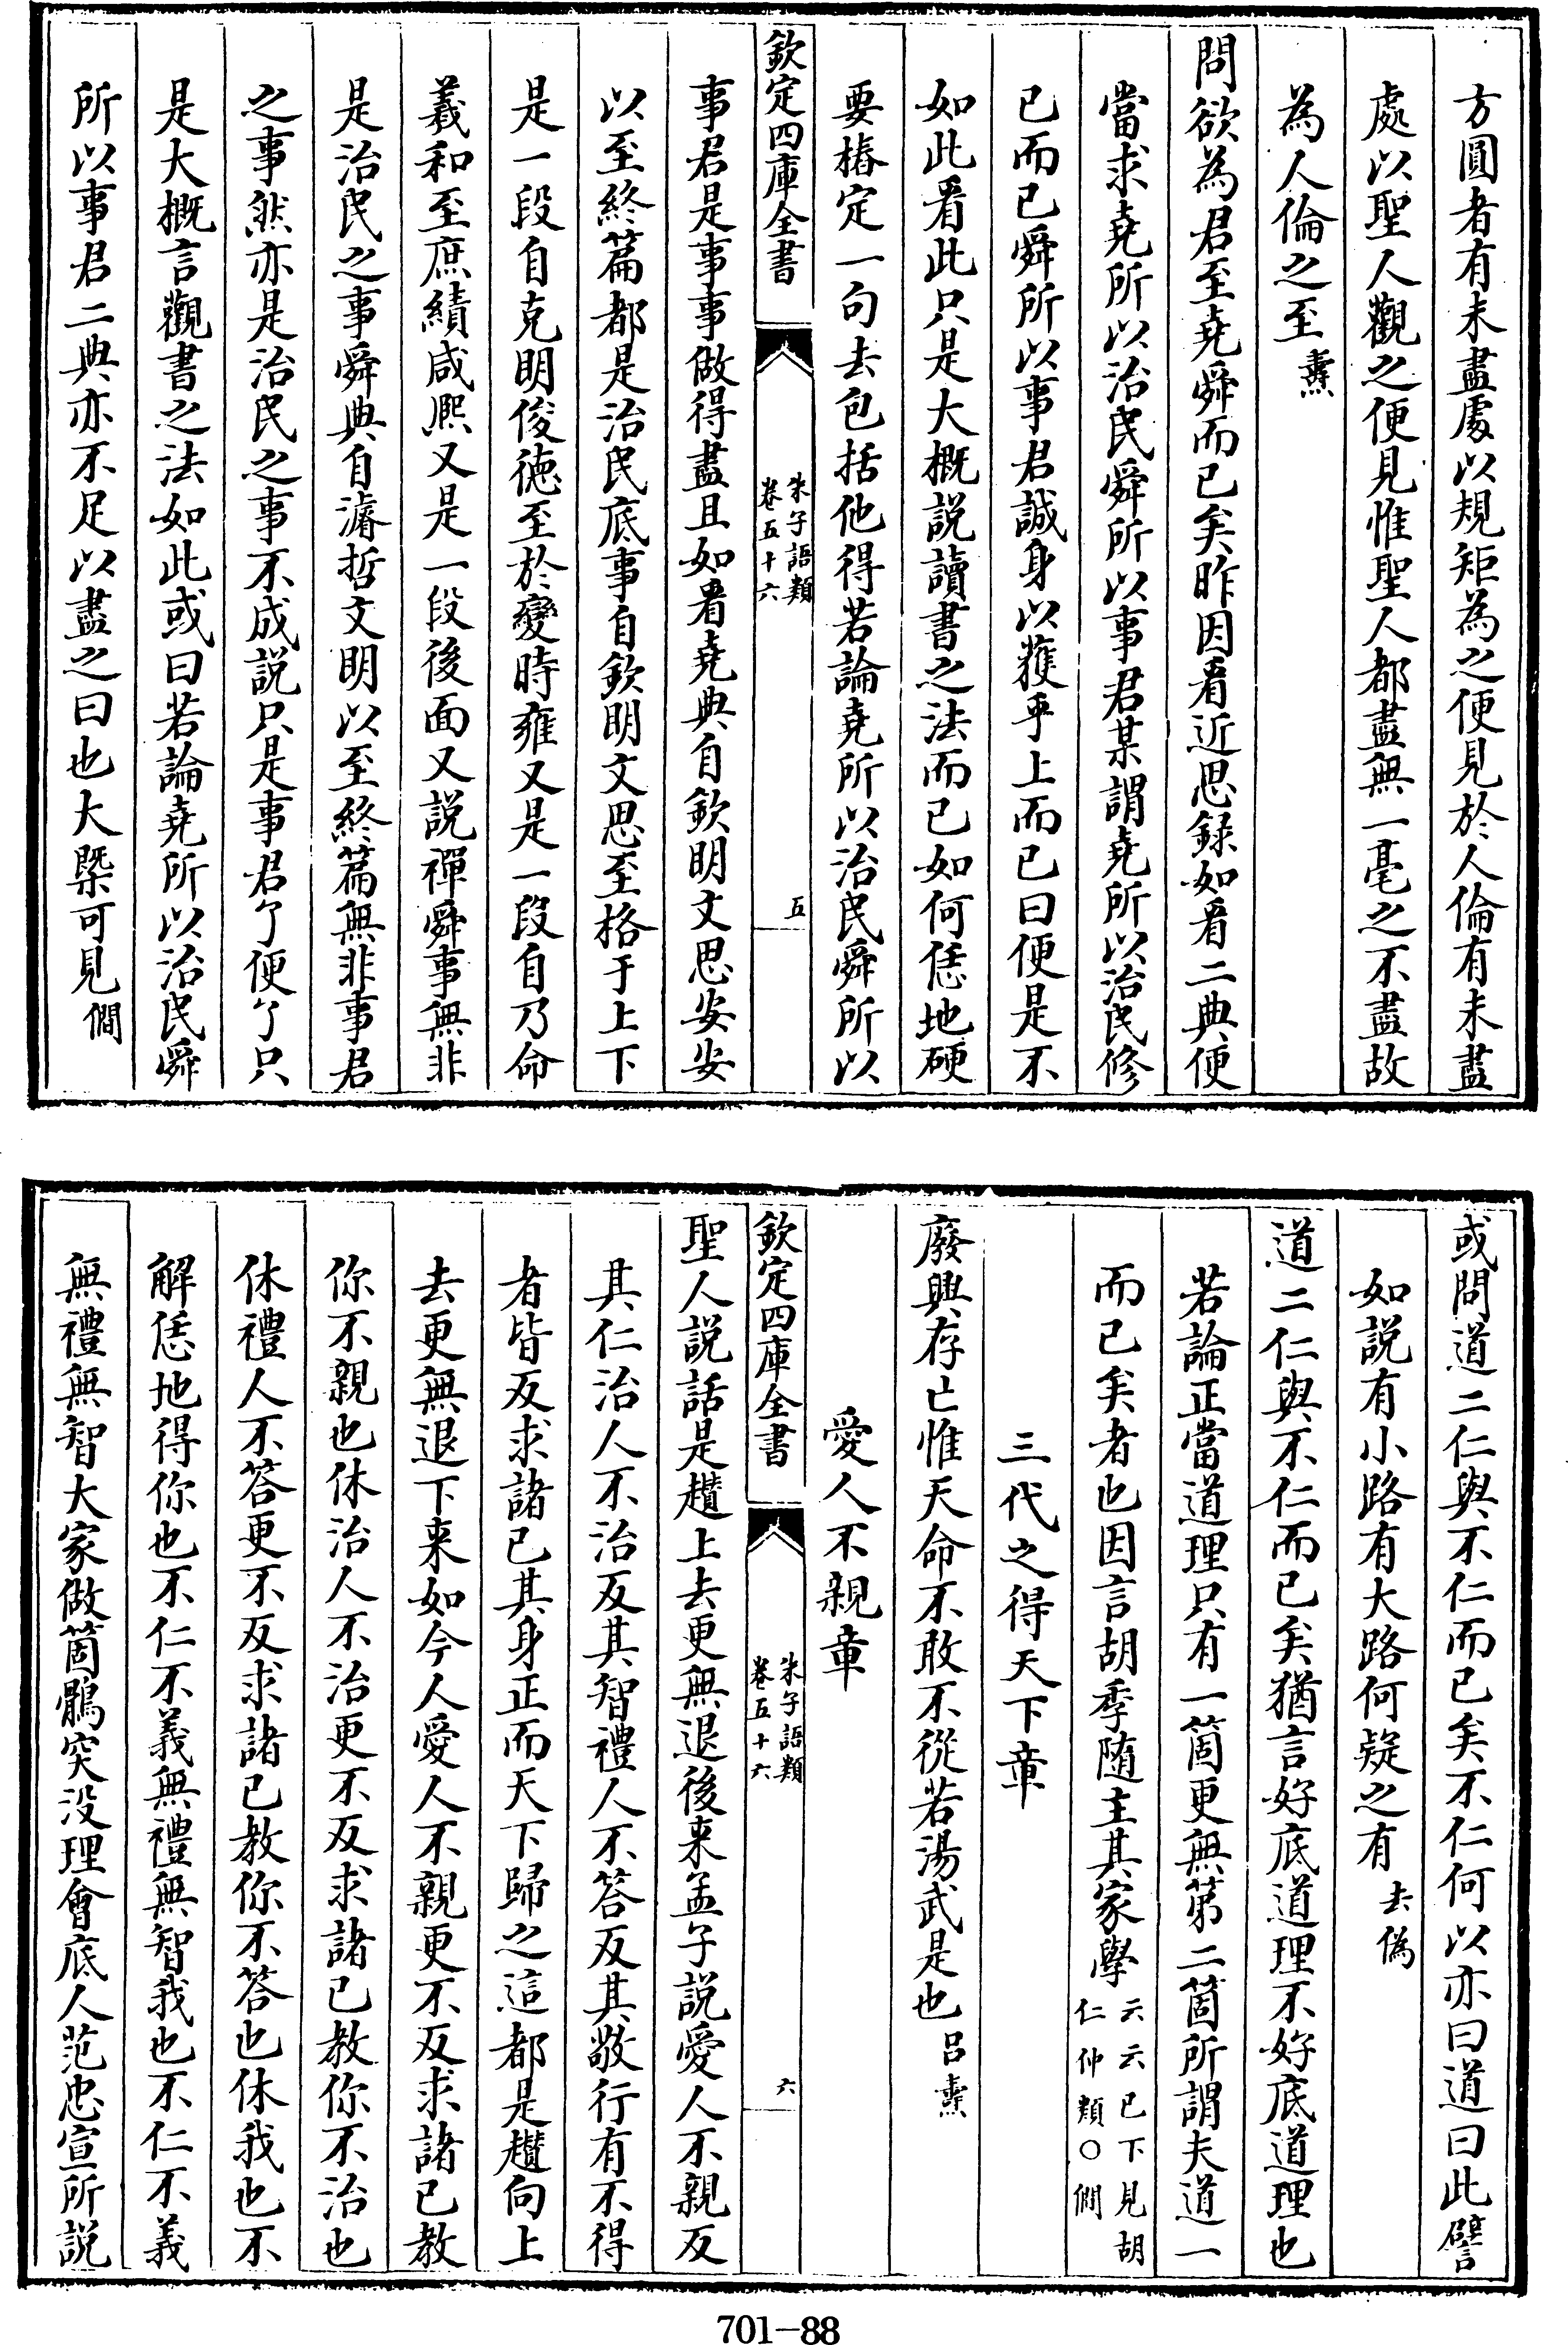 方圓者有未盡處以規矩為之便見於人倫有未盡
處以聖人觀之便見惟聖人都盡無一毫之不盡故
為人倫之至 燾
問欲為君至堯舜而已矣昨因看近思録如看二典便
當求堯所以治民舜所以事君某謂堯所以治民修
已而已舜所以事君誠身以獲乎上而已曰便是不
如此看此只是大概説讀書之法而已如何恁地硬
要樁定一句去包括他得若論堯所以治民舜所以
欽定四庫全書
朱子語類
卷五十六
五
事君是事事做得盡且如看堯典自欽明文思安安
以至終篇都是治民底事自欽明文思至格于上下
是一段自克明俊徳至於變時雍又是一段自乃命
羲和至庶績咸熙又是一段後面又説禪舜事無非
是治民之事舜典自濬哲文明以至終篇無非事君
之事然亦是治民之事不成説只是事君了便了只
是大概言觀書之法如此或曰若論堯所以治民舜
所以事君二典亦不足以盡之曰也大槩可見 僩
或問道二仁與不仁而已矣不仁何以亦曰道曰此譬
如説有小路有大路何疑之有 去偽
道二仁與不仁而已矣猶言好底道理不好底道理也
若論正當道理只有一箇更無第二箇所謂夫道一
而已矣者也因言胡季随主其家學 云云已下見胡
仁仲類○僩
三代之得天下章
廢興存亡惟天命不敢不從若湯武是也 呂燾
愛人不親章
欽定四庫全書
朱子語類
卷五十六
六
聖人説話是趲上去更無退後来孟子説愛人不親反
其仁治人不治反其智禮人不答反其敬行有不得
者皆反求諸已其身正而天下歸之這都是趲向上
去更無退下来如今人愛人不親更不反求諸已教
你不親也休治人不治更不反求諸已教你不治也
休禮人不答更不反求諸已教你不答也休我也不
解恁地得你也不仁不義無禮無智我也不仁不義
無禮無智大家做箇鶻突没理會底人范忠宣所説
701-88